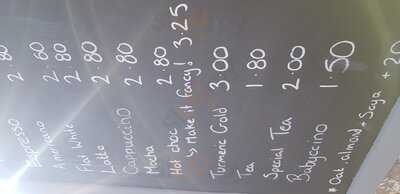 Espresso 2.60
Americano 2.80
Flat White 2.80
Latte 2.80
Cappuccino 2.80
Mocha 2.80
Hot choc 2.80
↳ Make it fancy! 3.25
Turmeric Gold 3.00
Tea 1.80
Special Tea 2.00
Babyccino 1.50
* Oat, almond + Soya + 20